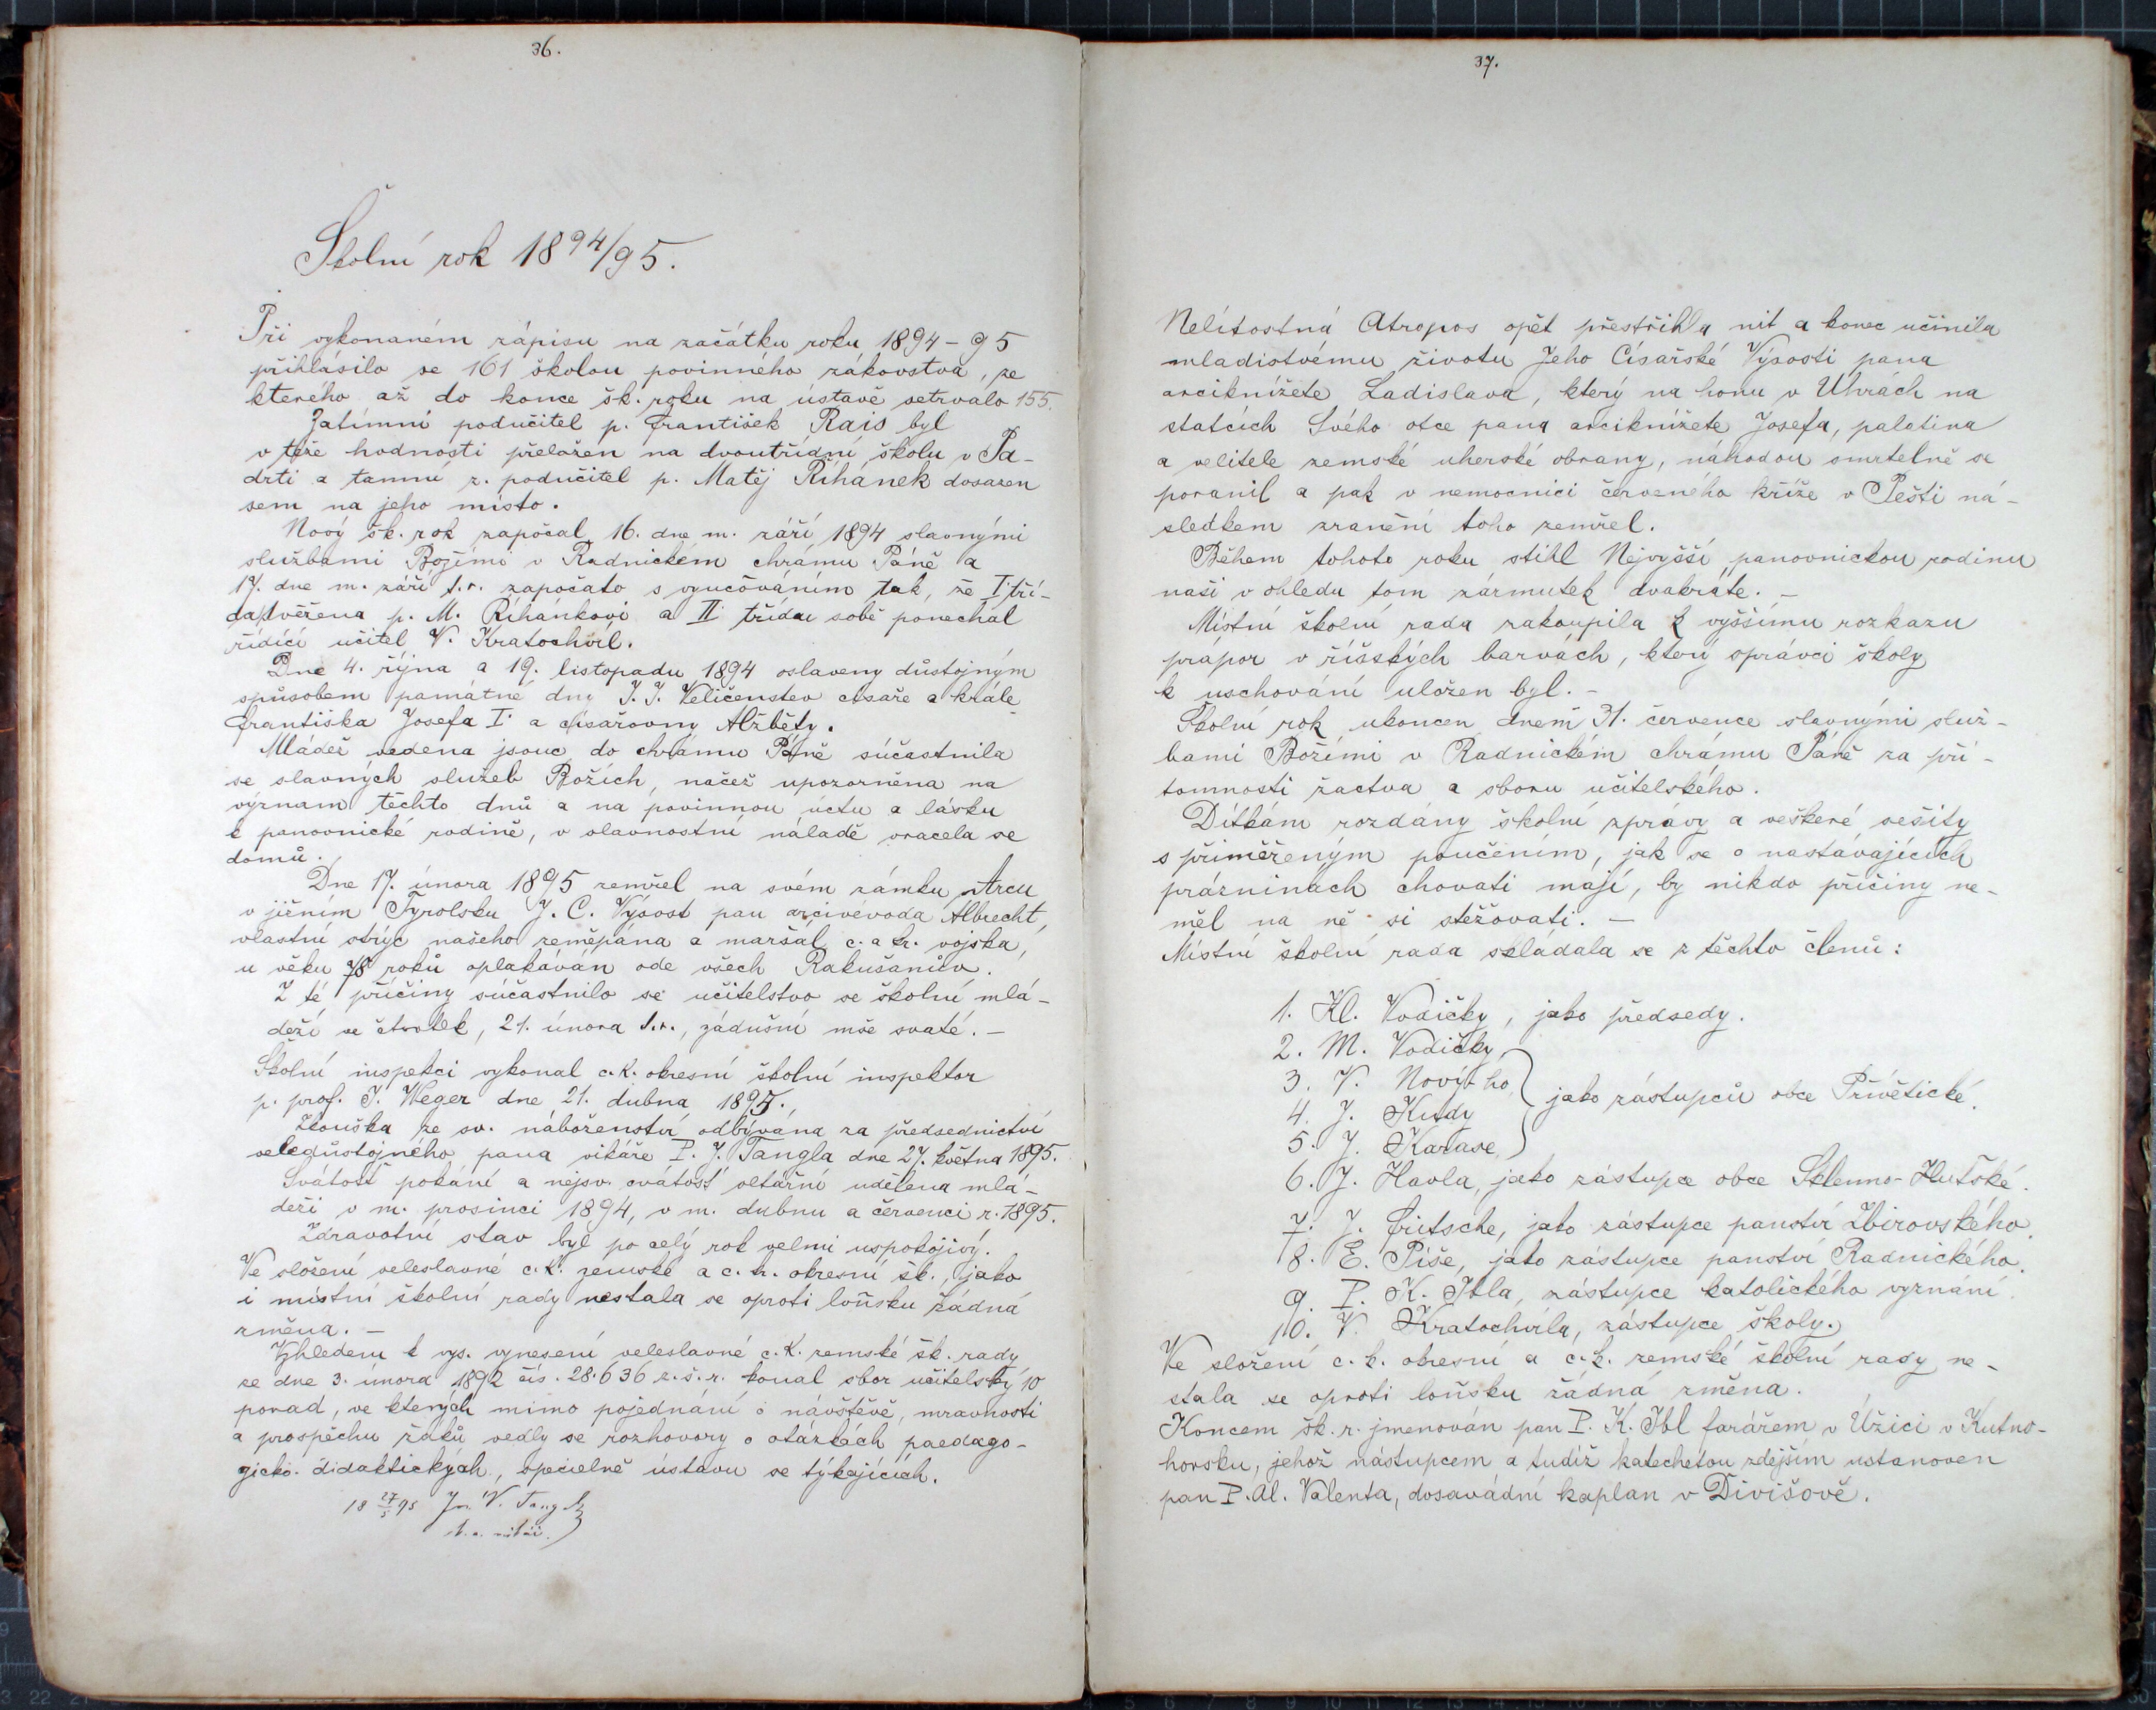 36.
Školní rok 1894/95.
Při vykonaném zápisu na začátku roku 1894-95
přihlásilo se 161 školou povinného žákovstva, ze
kterého až do konce šk. roku na ústavě setrvalo 155.
Zatímní podučitel p. František Rais byl
v téže hodnosti přeložen na dvoutřídní školu v Pa-
drti a tamní z. podučitel p. Matěj Říhánek dosazen
sem na jeho místo.
Nový šk. rok započal 16. dne m. září 1894 slavnými
službami Božími v Radnickém chrámu Páně a
17. dne m. září t.r. započato s vyučováním tak, že I tří-
da svěřena p. M. Říhánkovi a II třídu sobě ponechal
řídící učitel V. Kratochvíl.
Dne 4. října a 19. listopadu 1894 oslaveny důstojným
způsobem památné dny J. J. Veličenstev císaře a krále
Františka Josefa I. a císařovny Alžběty.
Mládež vedena jsouc do chrámu Páně súčastnila
se slavných služeb Božích, načež upozorněna na
význam těchto dnů a na povinnou úctu a lásku
k panovnické rodině, v slavnostní náladě vracela se
domů.
Dne 17. února 1895 zemřel na svém zámku Arcu
v jižním Tyrolsku J. C. Výsost pan arcivévoda Albrecht,
vlastní strýc našeho zeměpána a maršál c. a k. vojska,
u věku 78 roků oplakáván ode všech Rakušanův.
Z té příčiny súčastnilo se učitelstvo se školní mlá-
deží ve čtvrtek, 21. února t.r., zádušní mše svaté. -
Školní inspekci vykonal c.k. okresní školní inspektor
p. prof. J. Weger dne 21. dubna 1895.
Zkouška ze sv. náboženství odbývána za předsednictví
veledůstojného pana vikáře P. J. Tangla dne 27. května 1895.
Svátost pokání a nejsv. svátost oltářní udělena mlá-
deži v m. prosinci 1894, v m. dubnu a červenci r. 1895.
Zdravotní stav byl po celý rok velmi uspokojivý.
Ve složení veleslavné c.k. zemské a c.k. okresní šk., jako
i místní školní rady nestala se oproti loňsku žádná
změna. -
Vzhledem k vys. vynesení veleslavné c.k. zemské šk. rady
ze dne 3. února 1892 čís. 28.636 z.š.r. konal sbor učitelský 10
porad, ve kterých mimo pojednání o návštěvě, mravnosti
a prospěchu žáků vedly se rozhovory o otázkách paedago-
gicko-didaktických, specielně ústavu se týkajících.
18 27/5 95 Jos. V. Tangl
vikář.
37.
Nelítostná Atropos opět přestřihla nit a konec učinila
mladistvému životu Jeho Císařské Výsosti pana
arciknížete Ladislava, který na honu v Uhrách na
statcích Svého otce pana arciknížete Josefa, palatina
a velitele zemské uherské obrany, náhodou smrtelně se
poranil a pak v nemocnici červeného kříže v Pešti ná-
sledkem zranění toho zemřel.
Během tohoto roku stihl Nejvyšší panovnickou rodinu
naši v ohledu tom zármutek dvakráte. -
Místní školní rada zakoupila k vyššímu rozkazu
prápor v říšských barvách, který správci školy
k uschování uložen byl. -
Školní rok ukončen dnem 31. července slavnými služ-
bami Božími v Radnickém chrámu Páně za pří-
tomnosti žactva a sboru učitelského.
Dítkám rozdány školní zprávy a veškeré sešity
s přiměřeným poučením, jak se o nastávajících
prázninách chovati mají, by nikdo příčiny ne-
měl na ně si stěžovati. -
Místní školní rada skládala se z těchto členů:
1. Kl. Vodičky, jako předsedy.
2. M. Vodičky,
3. V. Nového
4. J. Kudy
5. J. Karase,
jako zástupců obce Přívětické.
6. J. Havla, jako zástupce obce Sklenno-Huťské.
7. J. Fritsche, jako zástupce panství Zbirovského.
8. E. Píše, jako zástupce panství Radnického.
9. P. K. Ibla, zástupce katolického vyznání.
10. V. Kratochvíla, zástupce školy.
Ve složení c.k. okresní a c.k. zemské školní rady ne-
stala se oproti loňsku žádná změna.
Koncem šk. r. jmenován pan P. K. Ibl farářem v Úžici v Kutno-
horsku, jehož nástupcem a tudíž katechetou zdejším ustanoven
pan P. Al. Valenta, dosavádní kaplan v Divišově.